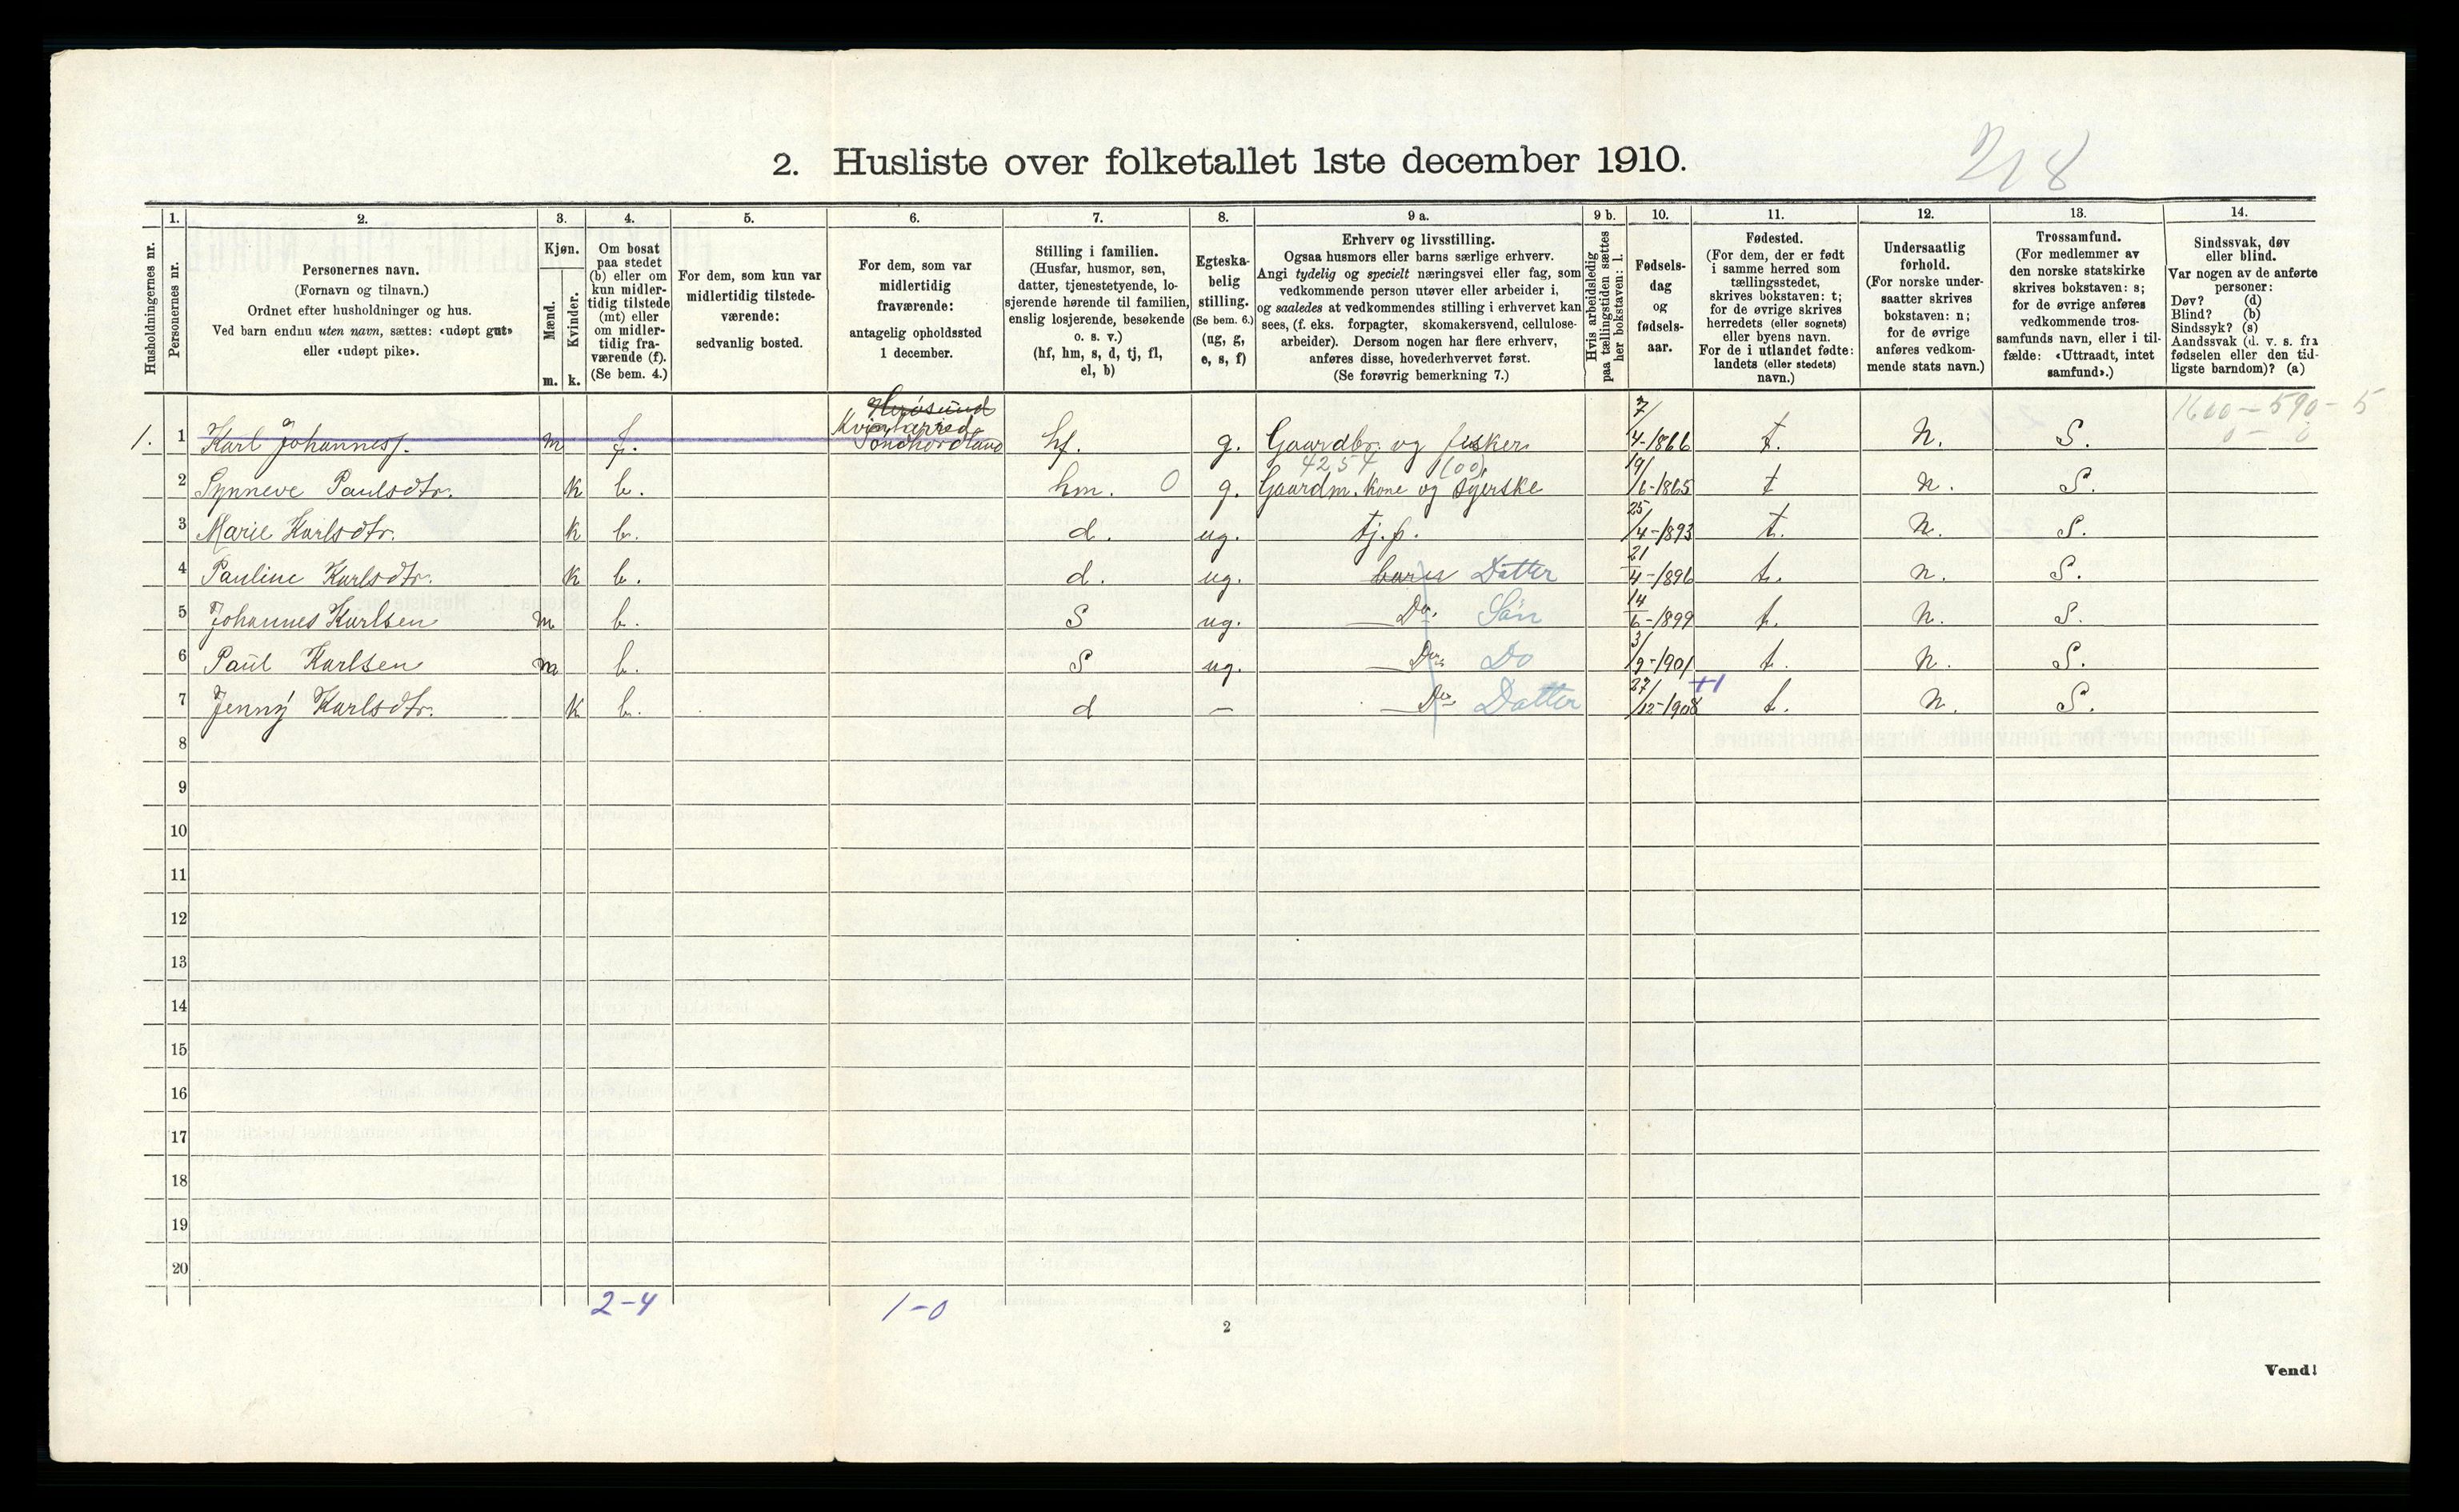 218
2. Husliste over folketallet 1ste december 1910.
1. 2. 3. 4. 5. 6. 7. 8. 9 a. 9 b. 10. 11. 12. 13. 14.
Husholdningernes nr.
Personernes nr.
Personernes navn.
(Fornavn og tilnavn.)
Ordnet efter husholdninger og hus.
Ved barn endnu uten navn, sættes: «udøpt gut»
eller «udøpt pike».
Kjøn.
Mænd.
Kvinder.
m. k.
Om bosat
paa stedet
(b) eller om
kun midler-
tidig tilstede
(mt) eller
om midler-
tidig fra-
værende (f).
(Se bem. 4.)
For dem, som kun var
midlertidig tilstede-
værende:
sedvanlig bosted.
For dem, som var
midlertidig
fraværende:
antagelig opholdssted
1 december.
Stilling i familien.
(Husfar, husmor, søn,
datter, tjenestetyende, lo-
sjerende hørende til familien,
enslig losjerende, besøkende
o. s. v.)
(hf, hm, s, d, tj, fl,
el, b)
Egteska-
belig
stilling.
(Se bem. 6.)
(ug, g,
e, s, f)
Erhverv og livsstilling.
Ogsaa husmors eller barns særlige erhverv.
Angi tydelig og specielt næringsvei eller fag, som
vedkommende person utøver eller arbeider i,
og saaledes at vedkommendes stilling i erhvervet kan
sees, (f. eks. forpagter, skomakersvend, cellulose-
arbeider). Dersom nogen har flere erhverv,
anføres disse, hovederhvervet først.
(Se forøvrig bemerkning 7.)
Hvis arbeidsledig
paa tællingstiden sættes
her bokstaven: l.
Fødsels-
dag
og
fødsels-
aar.
Fødested.
(For dem, der er født
i samme herred som
tællingsstedet,
skrives bokstaven: t;
for de øvrige skrives
herredets (eller sognets)
eller byens navn.
For de i utlandet fødte:
landets (eller stedets)
navn.)
Undersaatlig
forhold.
(For norske under-
saatter skrives
bokstaven: n;
for de øvrige
anføres vedkom-
mende stats navn.)
Trossamfund.
(For medlemmer av
den norske statskirke
skrives bokstaven: s;
for de øvrige anføres
vedkommende tros-
samfunds navn, eller i til-
fælde: «Uttraadt, intet
samfund».)
Sindssvak, døv
eller blind.
Var nogen av de anførte
personer:
Døv? (d)
Blind? (b)
Sindssyk? (s)
Aandssvak (d. v. s. fra
fødselen eller den tid-
ligste barndom)? (a)
1600-590-5
0-0
Kvinherred
1. 1 Karl Johannes. m f. Søndhordland hf. g. Gaardbr. og fisker 7/4-1866 t. N. S.
4254 (00)
2 Synneve Paulsdtr. k b. hm. 0 g. Gaardm. kone og syerske 19/6-1865 t n. S.
3 Marie Karlsdtr. k b. d. ug. tj.p. 25/4-1893 t. N. S.
4 Pauline Karlsdtr. k b. d. ug. barn Datter 21/4-1896 t. n. S.
5 Johannes Karlsen m b. S ug. Do. Sön 14/6-1899 t. N. S.
6 Paul Karlsen m b. S ug. Do. Do 3/9-1901 t. N. S.
+1
7 Jenny Karlsdtr. k b. d – Do Datter 27/12-1908 t. N. S.
8
9
10
11
12
13
14
15
16
17
18
19
20
2-4 1-0
2
Vend!